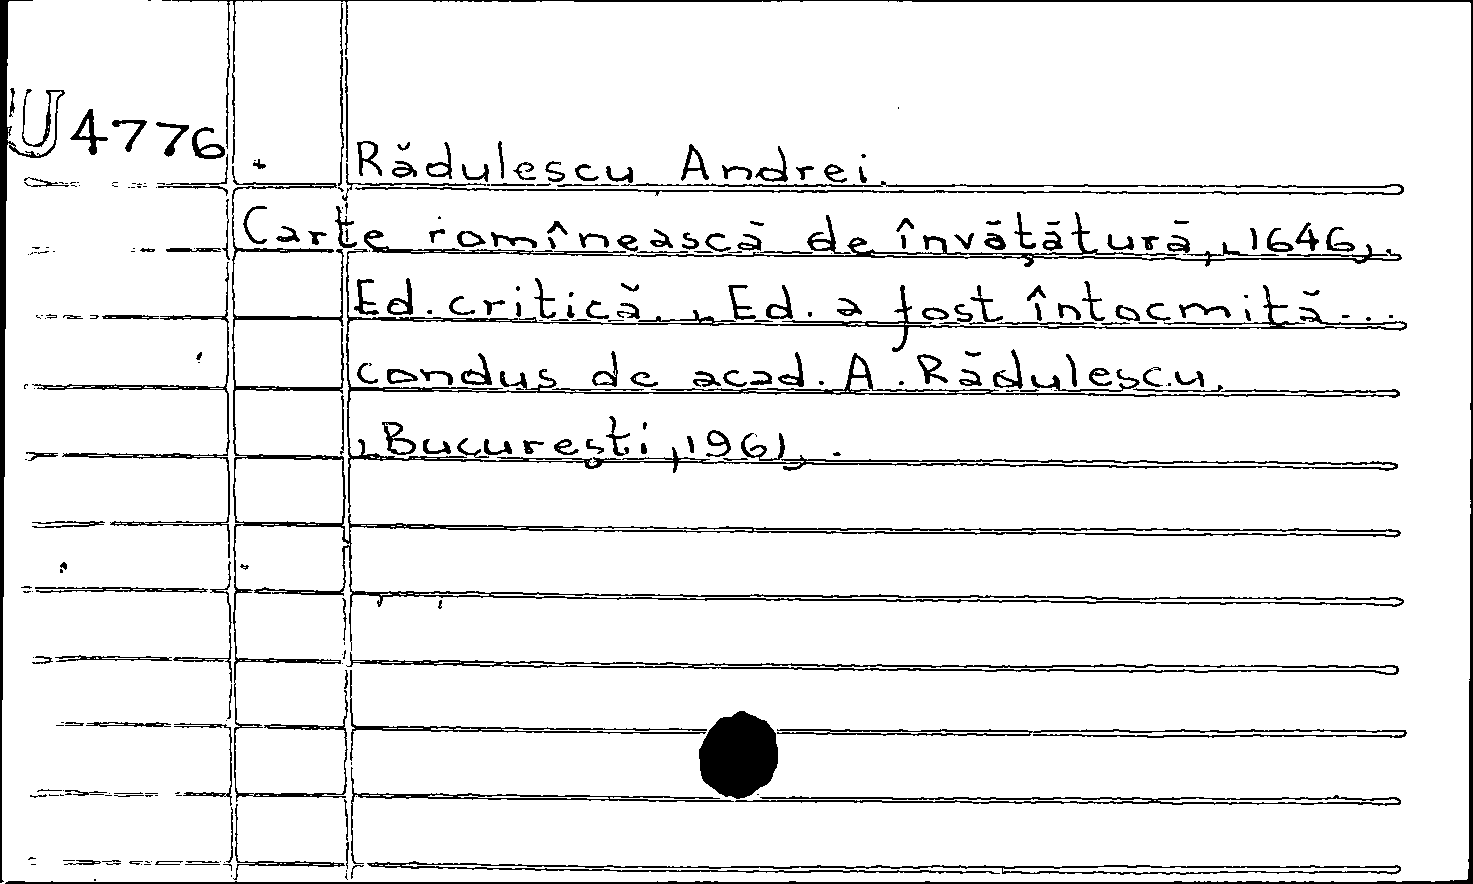 U4776
Rădulescu Andrei.
Carte romînească de învăţătură, [1646].
Ed. critică. [Ed. a fost întocmită...
condus de acad. A. Rădulescu.
[Bucureşti, 1961].